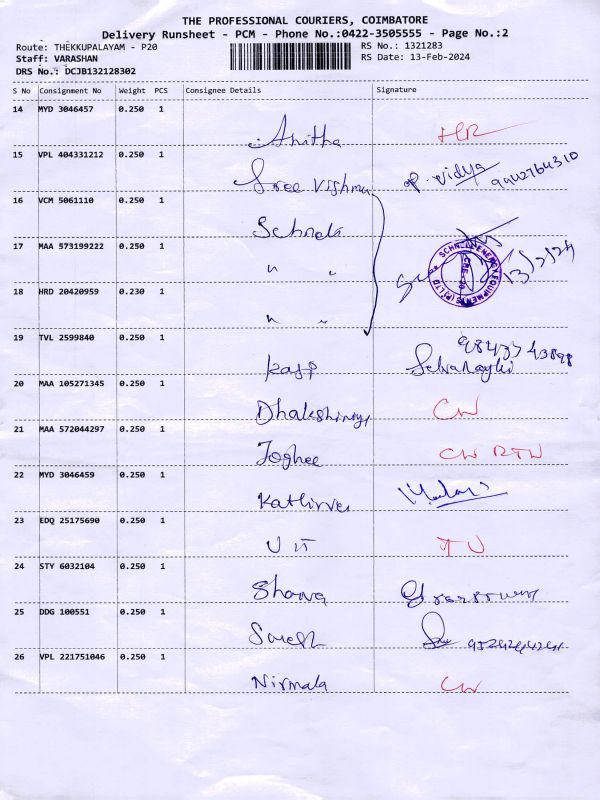 THE PROFESSIONAL COURIERS, COIMBATORE
Delivery Runsheet - PCM - Phone No.:0422-3505555 - Page No.:2
Route: THEKKUPALAYAM - P20 RS No.: 1321283
Staff: VARASHAN RS Date: 13-Feb-2024
DRS No.: DCJB132128302
S No Consignment No Weight PCS Consignee Details Signature
14 MYD 3046457 0.250 1
Anitha HR
15 VPL 404331212 0.250 1
Sree Vishnu Vidya 9942764310
16 VCM 5061110 0.250 1
17 MAA 573199222 0.250 1
" " 13/2/24
18 HRD 20420959 0.230 1
" "
19 TVL 2599840 0.250 1
20 MAA 105271345 0.250 1
CW
21 MAA 572044297 0.250 1
CW RTN
22 MYD 3046459 0.250 1
Kathirvel
23 EDQ 25175690 0.250 1
24 STY 6032104 0.250 1
25 DDG 100551 0.250 1
26 VPL 221751046 0.250 1
Nirmala CW